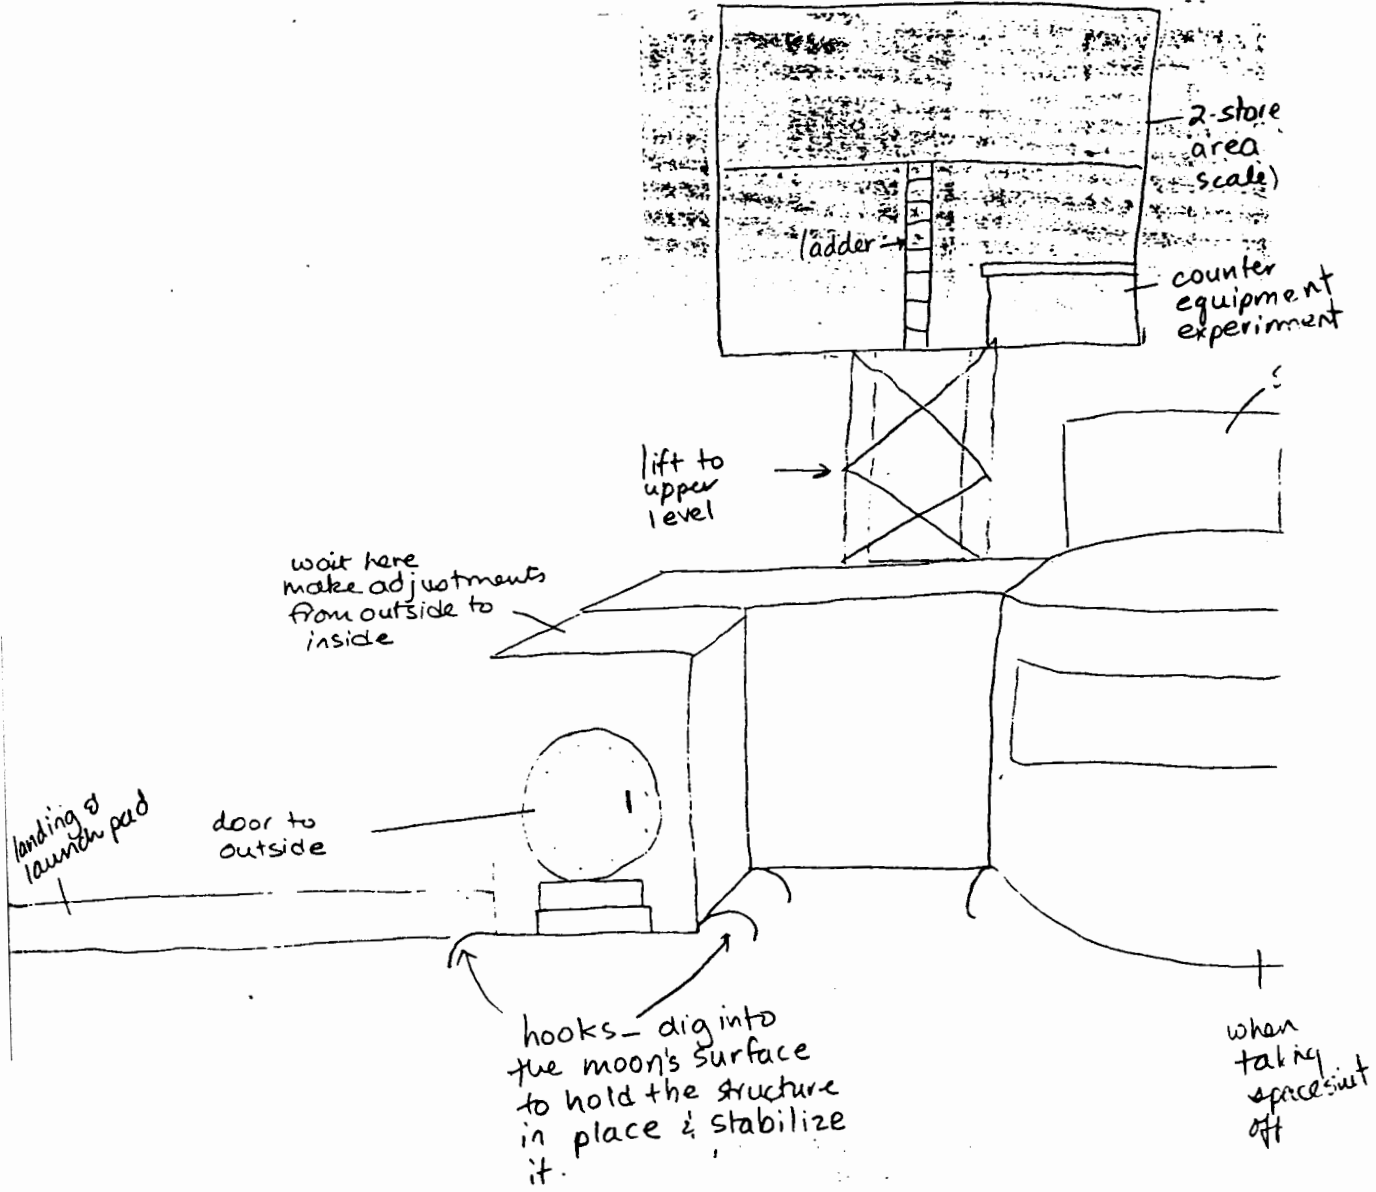 2-store
area
scale)
ladder
counter
equipment
experiment
lift to
upper
level
wait here
make adjustments
from outside to
inside
landing &
launch pad
door to
outside
hooks - dig into
the moon's surface
to hold the structure
in place & stabilize
it.
when
taking
spacesuit
off